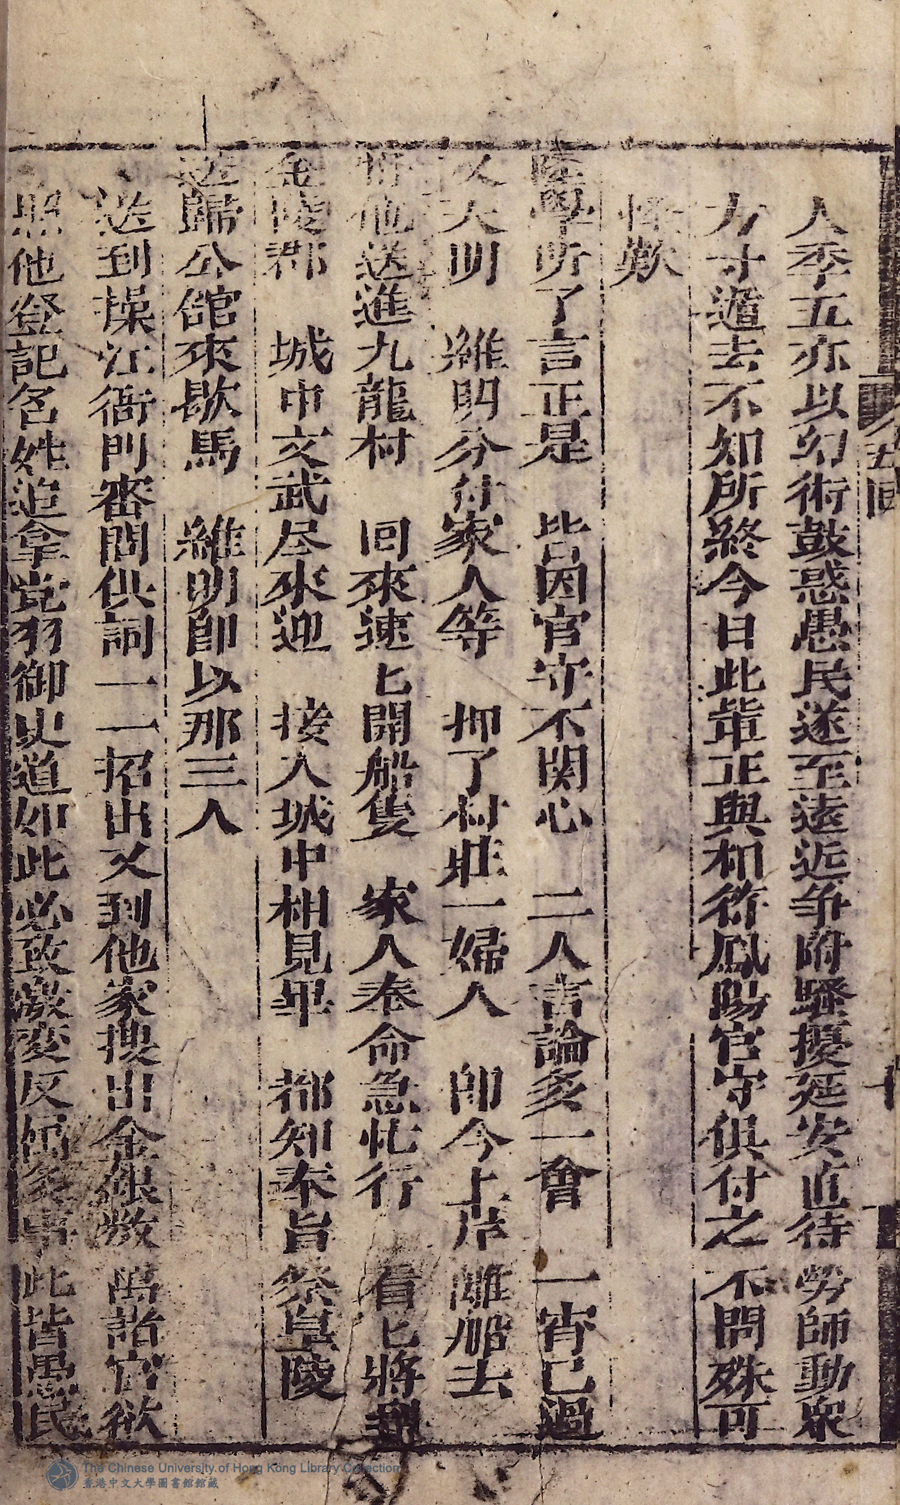 人季五亦以幻術鼓惑愚民遂至遠近爭附騷擾延安直待勞師動衆
方寸遁去不知所終今日此輩正與相符鳳陽官守俱付之不問殊可
怪歎
陸學听了言正是 皆因官守不関心 二人言論多一會 一宵已過
又天明 維明分付家人等 押了村莊一婦人 即今上岸離船去
將他送進九龍村 回來速匕開船隻 家人奉命急忙行 看匕將到
金陵郡 城中文武尽來迎 接入城中相見畢 都知奉旨祭皇陵
送歸公舘來歇馬 維明即以那三人
送到操江衙門審問供詞一一招出又到他家搜出金銀数萬詣官欲
照他登記名姓追拿党羽御史道如此必致激変反爲多事此皆愚民
五回
The Chinese University of Hong Kong Library Collection
香港中文大學圖書館館藏